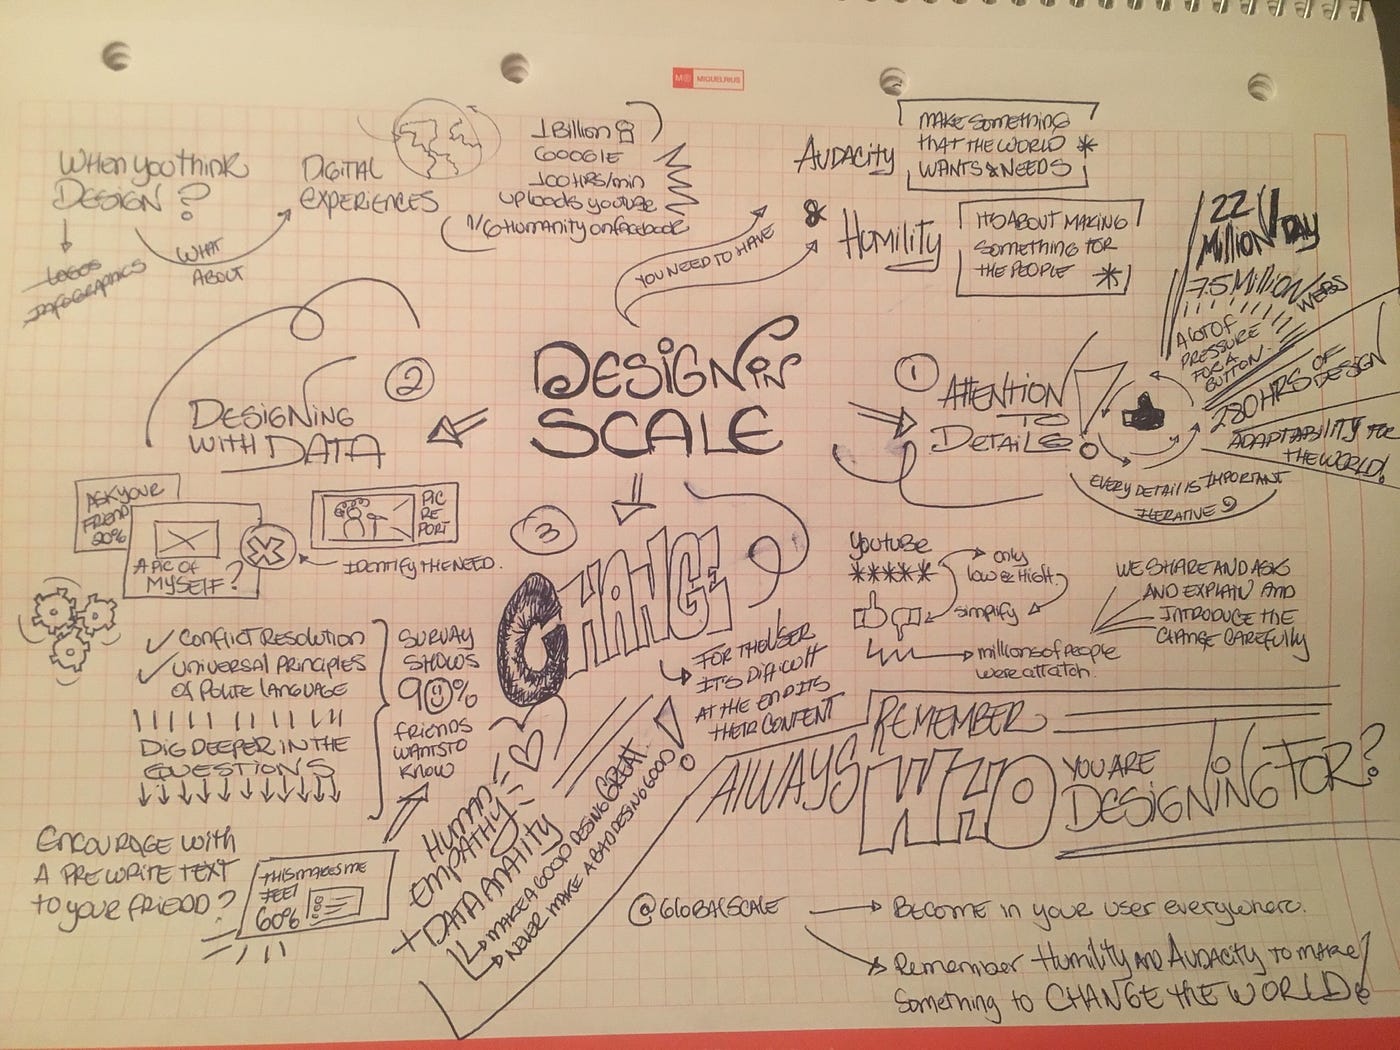 MIQUELRIUS
WHEN YOU THINK
DESIGN?
LOGOS
INFOGRAPHICS
WHAT
ABOUT
DIGITAL
EXPERIENCES
1 Billion
GOOGLE
100 HRS/min
UPLOADS YOUTUBE
1/6 HUMANITY ON FACEBOOK
YOU NEED TO HAVE
AUDACITY
MAKE SOMETHING
THAT THE WORLD *
WANTS & NEEDS
&
HUMILITY
IT'S ABOUT MAKING
SOMETHING FOR
THE PEOPLE *
DESIGN IN
SCALE
1
ATTENTION
TO
DETAILS!
22
MILLION/DAY
7.5 MILLION/WEBS
A LOT OF
PRESSURE
FOR A
BUTTON.
280 HRS OF
DESIGN
ADAPTABILITY FOR
THE WORLD!
EVERY DETAIL IS IMPORTANT
ITERATIVE
2
DESIGNING
WITH DATA
ASK YOUR
FRIEND
20%
A PIC OF
MYSELF?
PIC
RE
PORT
IDENTIFY THE NEED.
✓ CONFLICT RESOLUTION
✓ UNIVERSAL PRINCIPLES
OF POLITE LANGUAGE
DIG DEEPER IN THE
QUESTIONS
SURVAY
SHOWS
90%
FRIENDS
WANTS TO
KNOW
ENCOURAGE WITH
A PREWRITE TEXT
TO YOUR FRIEND?
THIS MAKES ME
FEEL
60%
3
CHANGE
FOR THE USER
IT'S DIFICULT
AT THE END ITS
THEIR CONTENT
HUMAN
EMPATHY
+ DATA ANALITY
MAKE A GOOD DESING GREAT.
NEVER MAKE A BAD DESING GOOD
YOUTUBE
*****
ONLY
LOW & HIGH.
SIMPLIFY
MILLIONS OF PEOPLE
WERE ATTATCH.
WE SHARE AND ASKS
AND EXPLAIN AND
INTRODUCE THE
CHANGE CAREFULLY
REMEMBER
ALWAYS WHO YOU ARE
DESIGNING FOR?
@GLOBALSCALE
BECOME IN YOUR USER EVERYWHERE.
REMEMBER HUMILITY AND AUDACITY TO MAKE
SOMETHING TO CHANGE THE WORLD!